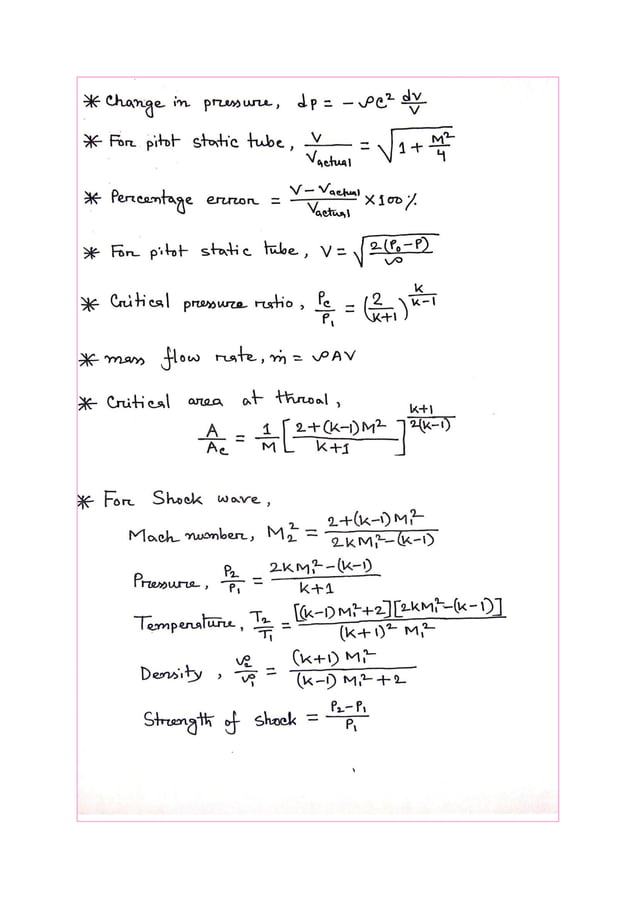 * Change in pressure, dp = - ρc² dv/v
* For pitot static tube, V/Vactual = √(1 + M²/4)
* Percentage error = (V - Vactual)/Vactual × 100 %
* For pitot static tube, V = √(2(P₀-P)/ρ)
* Critical pressure ratio, Pc/P₁ = (2/(k+1))^(k/(k-1))
* mass flow rate, ṁ = ρAV
* Critical area at throal,
A/Ac = 1/M [(2+(k-1)M²)/(k+1)]^((k+1)/(2(k-1)))
* For Shock wave,
Mach number, M₂² = (2+(k-1)M₁²)/(2kM₁²-(k-1))
Pressure, P₂/P₁ = (2kM₁²-(k-1))/(k+1)
Temperature, T₂/T₁ = ([(k-1)M₁²+2][2kM₁²-(k-1)])/((k+1)² M₁²)
Density, ρ₂/ρ₁ = ((k+1)M₁²)/((k-1)M₁²+2)
Strength of shock = (P₂-P₁)/P₁